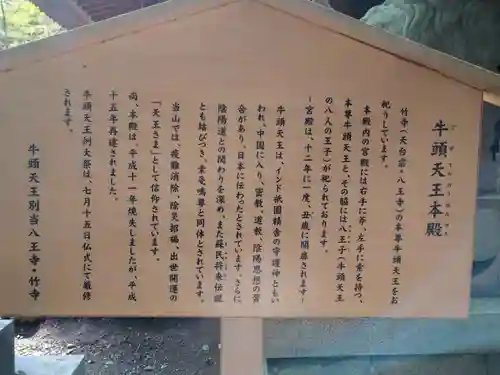 牛頭天王本殿
ごずてんのうほんでん
竹寺(天台宗・八王寺)の本尊牛頭天王をお
祀りしています。
本殿内の宮殿には右手に斧、左手に索を持つ、
本尊牛頭天王と、その脇には八王子(牛頭天王
の八人の王子)が祀られております。
―宮殿は、十二年に一度、丑歳に開扉されます―
牛頭天王は、インド祇園精舎の守護神ともい
われ、中国に入り、密教、道教、陰陽思想の習
合があり、日本に伝わったとされます。さらに
陰陽道との関わりを深め、また蘇民将来伝説
とも結びつき、素戔嗚尊と同体とされています。
当山では、疫難消除、除災招福、出世開運の
「天王さま」として信仰されています。
尚、本殿は、平成十一年焼失しましたが、平成
十五年再建されました。
牛頭天王例大祭は、七月十五日仏式にて厳修
されます。
牛頭天王別当八王寺・竹寺